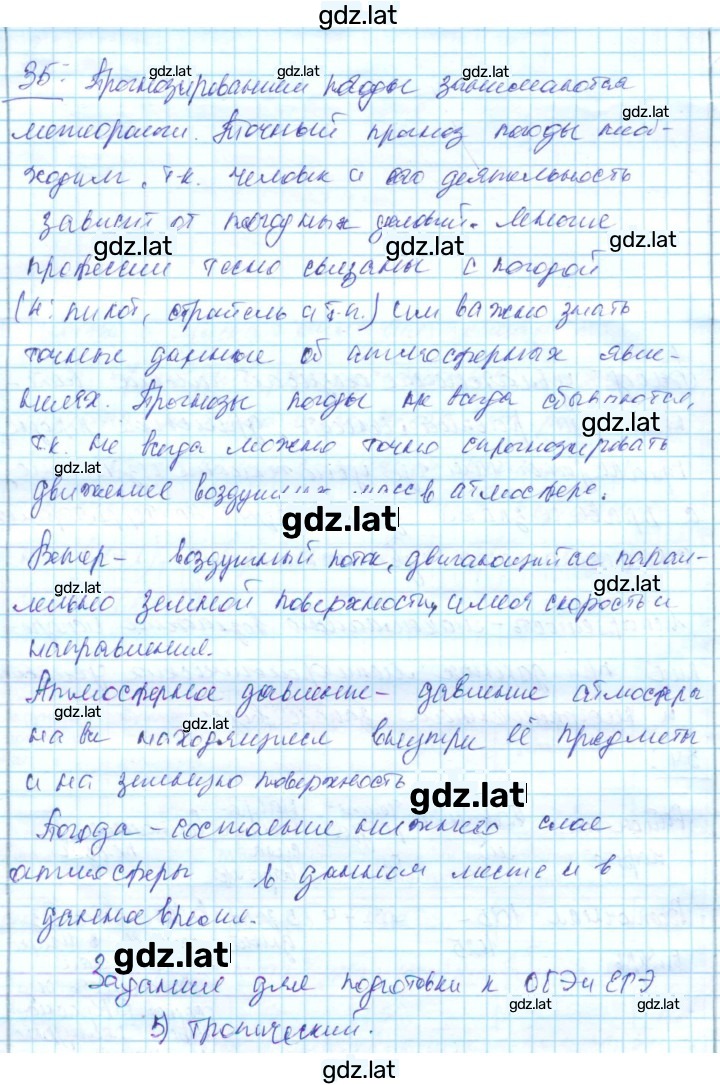 gdz.lat
35. Прогнозированием погоды занимаются
метеорологи. Точный прогноз погоды необ-
ходим, т.к. человек и его деятельность
зависит от погодных условий. Многие
профессии тесно связаны с погодой
(н: пилот, строитель и т.п.) им важно знать
точные данные об атмосферных явле-
ниях. Прогнозы погоды не всегда сбываются,
т.к. не всегда можно точно спрогнозировать
движение воздушных масс в атмосфере.
Ветер - воздушный поток, двигающийся парал-
лельно земной поверхности, имея скорость и
направления.
Атмосферное давление - давление атмосферы
на все находящиеся внутри её предметы
и на земную поверхность
Погода - состояние нижнего слоя
атмосферы в данном месте и в
данное время.
Задания для подготовки к ОГЭ и ЕГЭ
5) Тропический.
gdz.lat